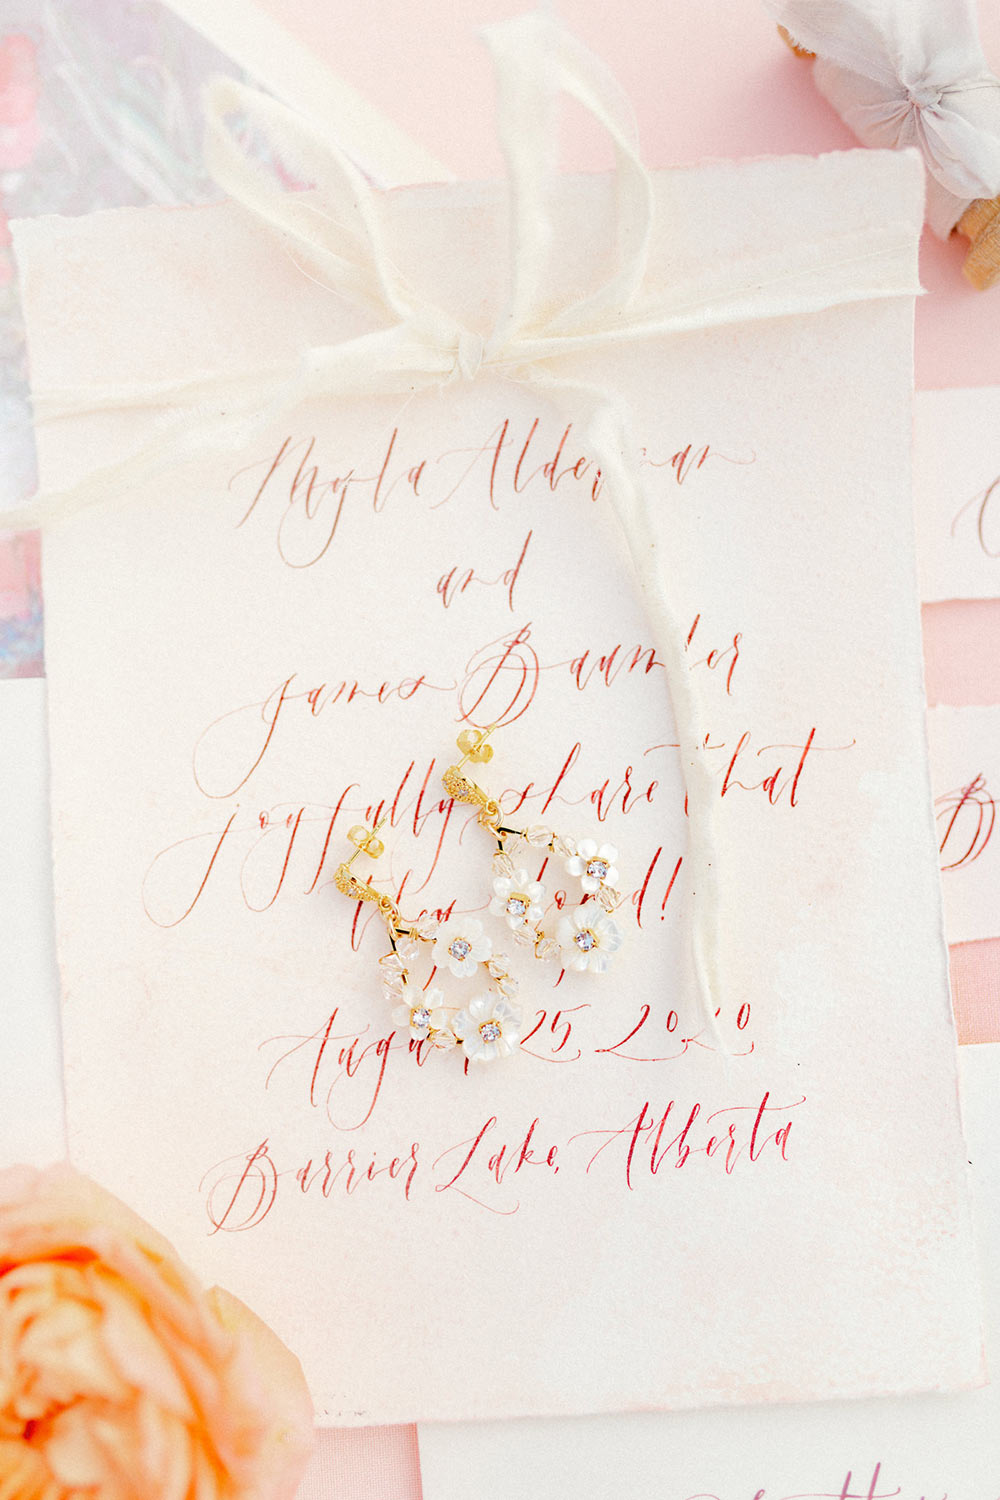 Myla Alderman
and
James Baumler
joyfully share that
they
August 25, 2020
Barrier Lake, Alberta
B